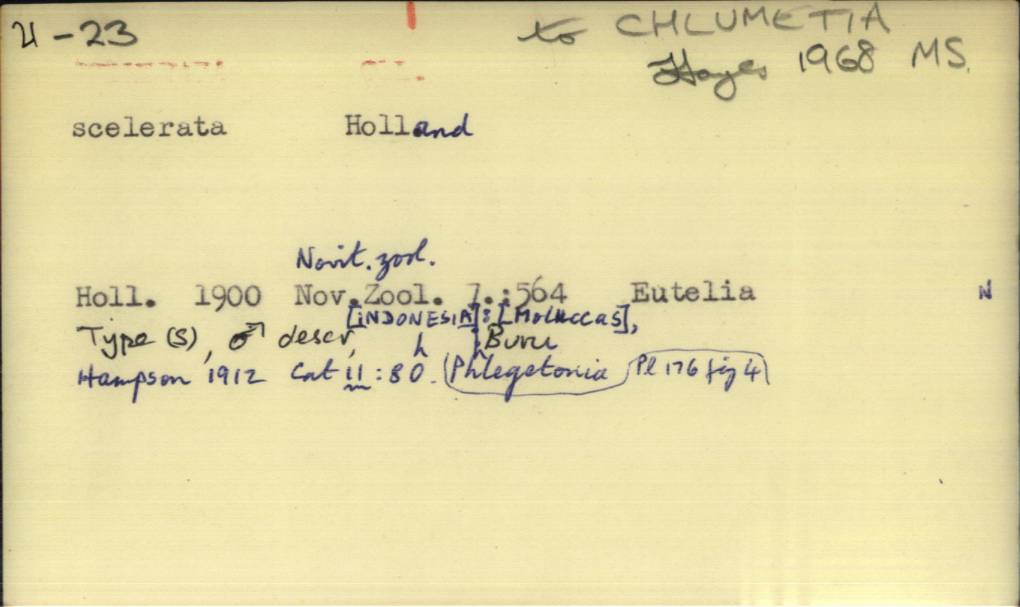 U-23
to CHLUMETIA
Hayes 1968 MS.
scelerata Holland
Novit. zool.
Holl. 1900 Nov.Zool. 7.:564 Eutelia N
[INDONESIA]: [Moluccas],
Type (S), ♂ descr, Buru
Hampson 1912 Cat 11:80. (Phlegetonia) Pl 176 fig 4